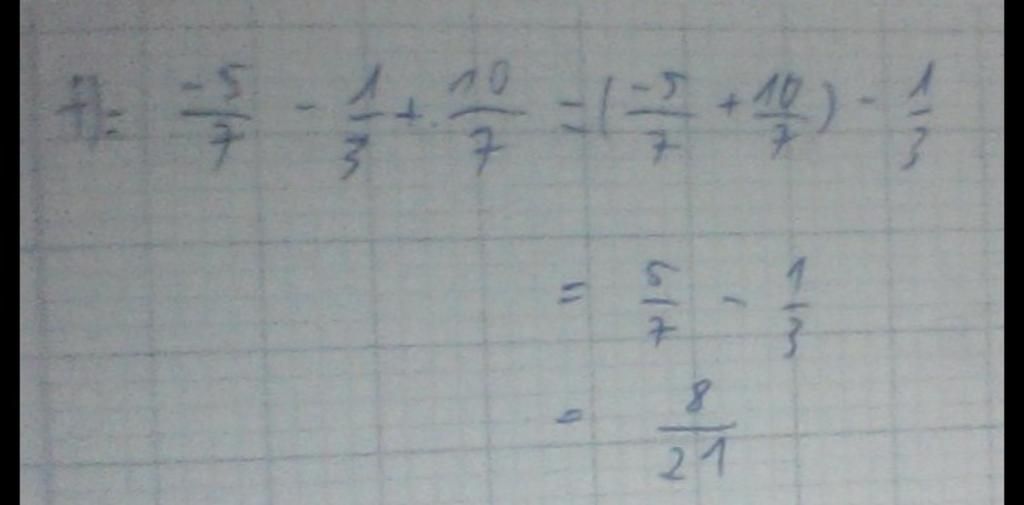 = -5/7 - 1/3 + 10/7 = (-5/7 + 10/7) - 1/3
= 5/7 - 1/3
= 8/21